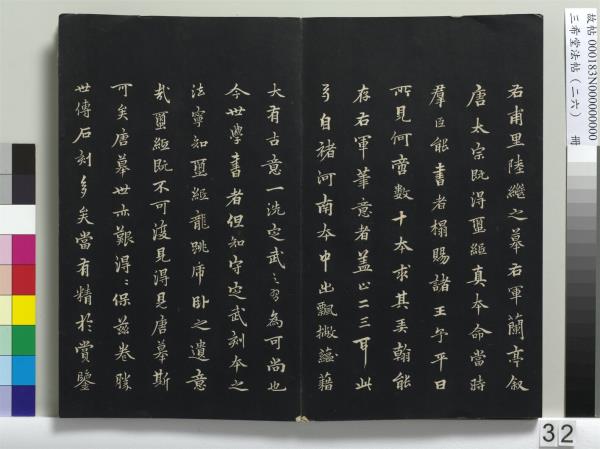 右甫里陸繼之摹右軍蘭亭叙
唐太宗既得璽紙真本命當時
羣臣能書者榻賜諸王予平日
所見何啻數十本求其弄翰能
存右軍筆意者蓋止二三耳此
自褚河南本中出飄撇蘊藉
大有古意一洗定武之習為可尚也
今世學書者但知守定武刻本之
法寧知璽紙龍跳虎卧之遺意
哉璽紙既不可復見得見唐摹斯
可矣唐摹世亦艱得得保兹卷勝
世傳石刻多矣當有精於賞鑒
故帖 000183N000000000
三希堂法帖（二六） 冊
32